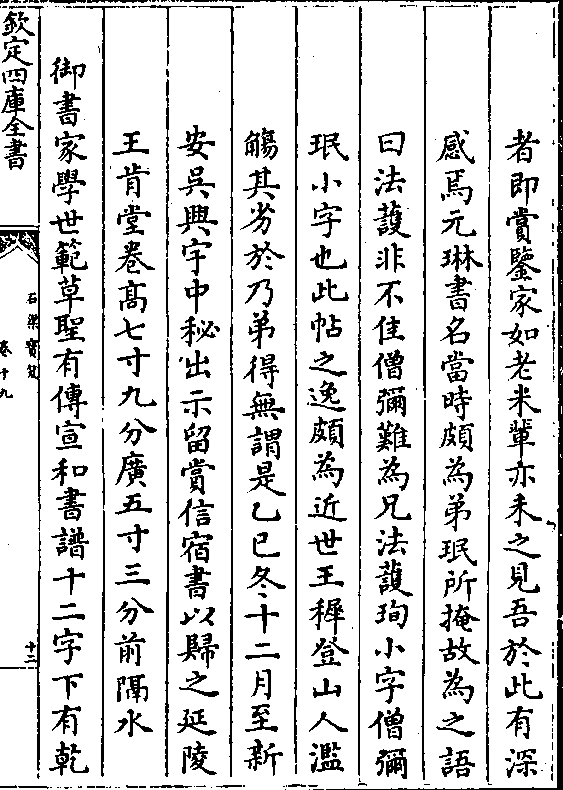 者即賞鑒家如老米輩亦未之見吾於此有深
感焉元琳書名當時頗為弟珉所掩故為之語
曰法護非不佳僧彌難為兄法護珣小字僧彌
珉小字也此帖之逸頗為近世王穉登山人濫
觴其劣於乃弟得無謂是乙巳冬十二月至新
安吳興宇中秘出示留賞信宿書以歸之延陵
王肯堂卷髙七寸九分廣五寸三分前隔水
御書家學世範草聖有傳宣和書譜十二字下有乾
欽定四庫全書
石渠寳笈
卷十九
十二